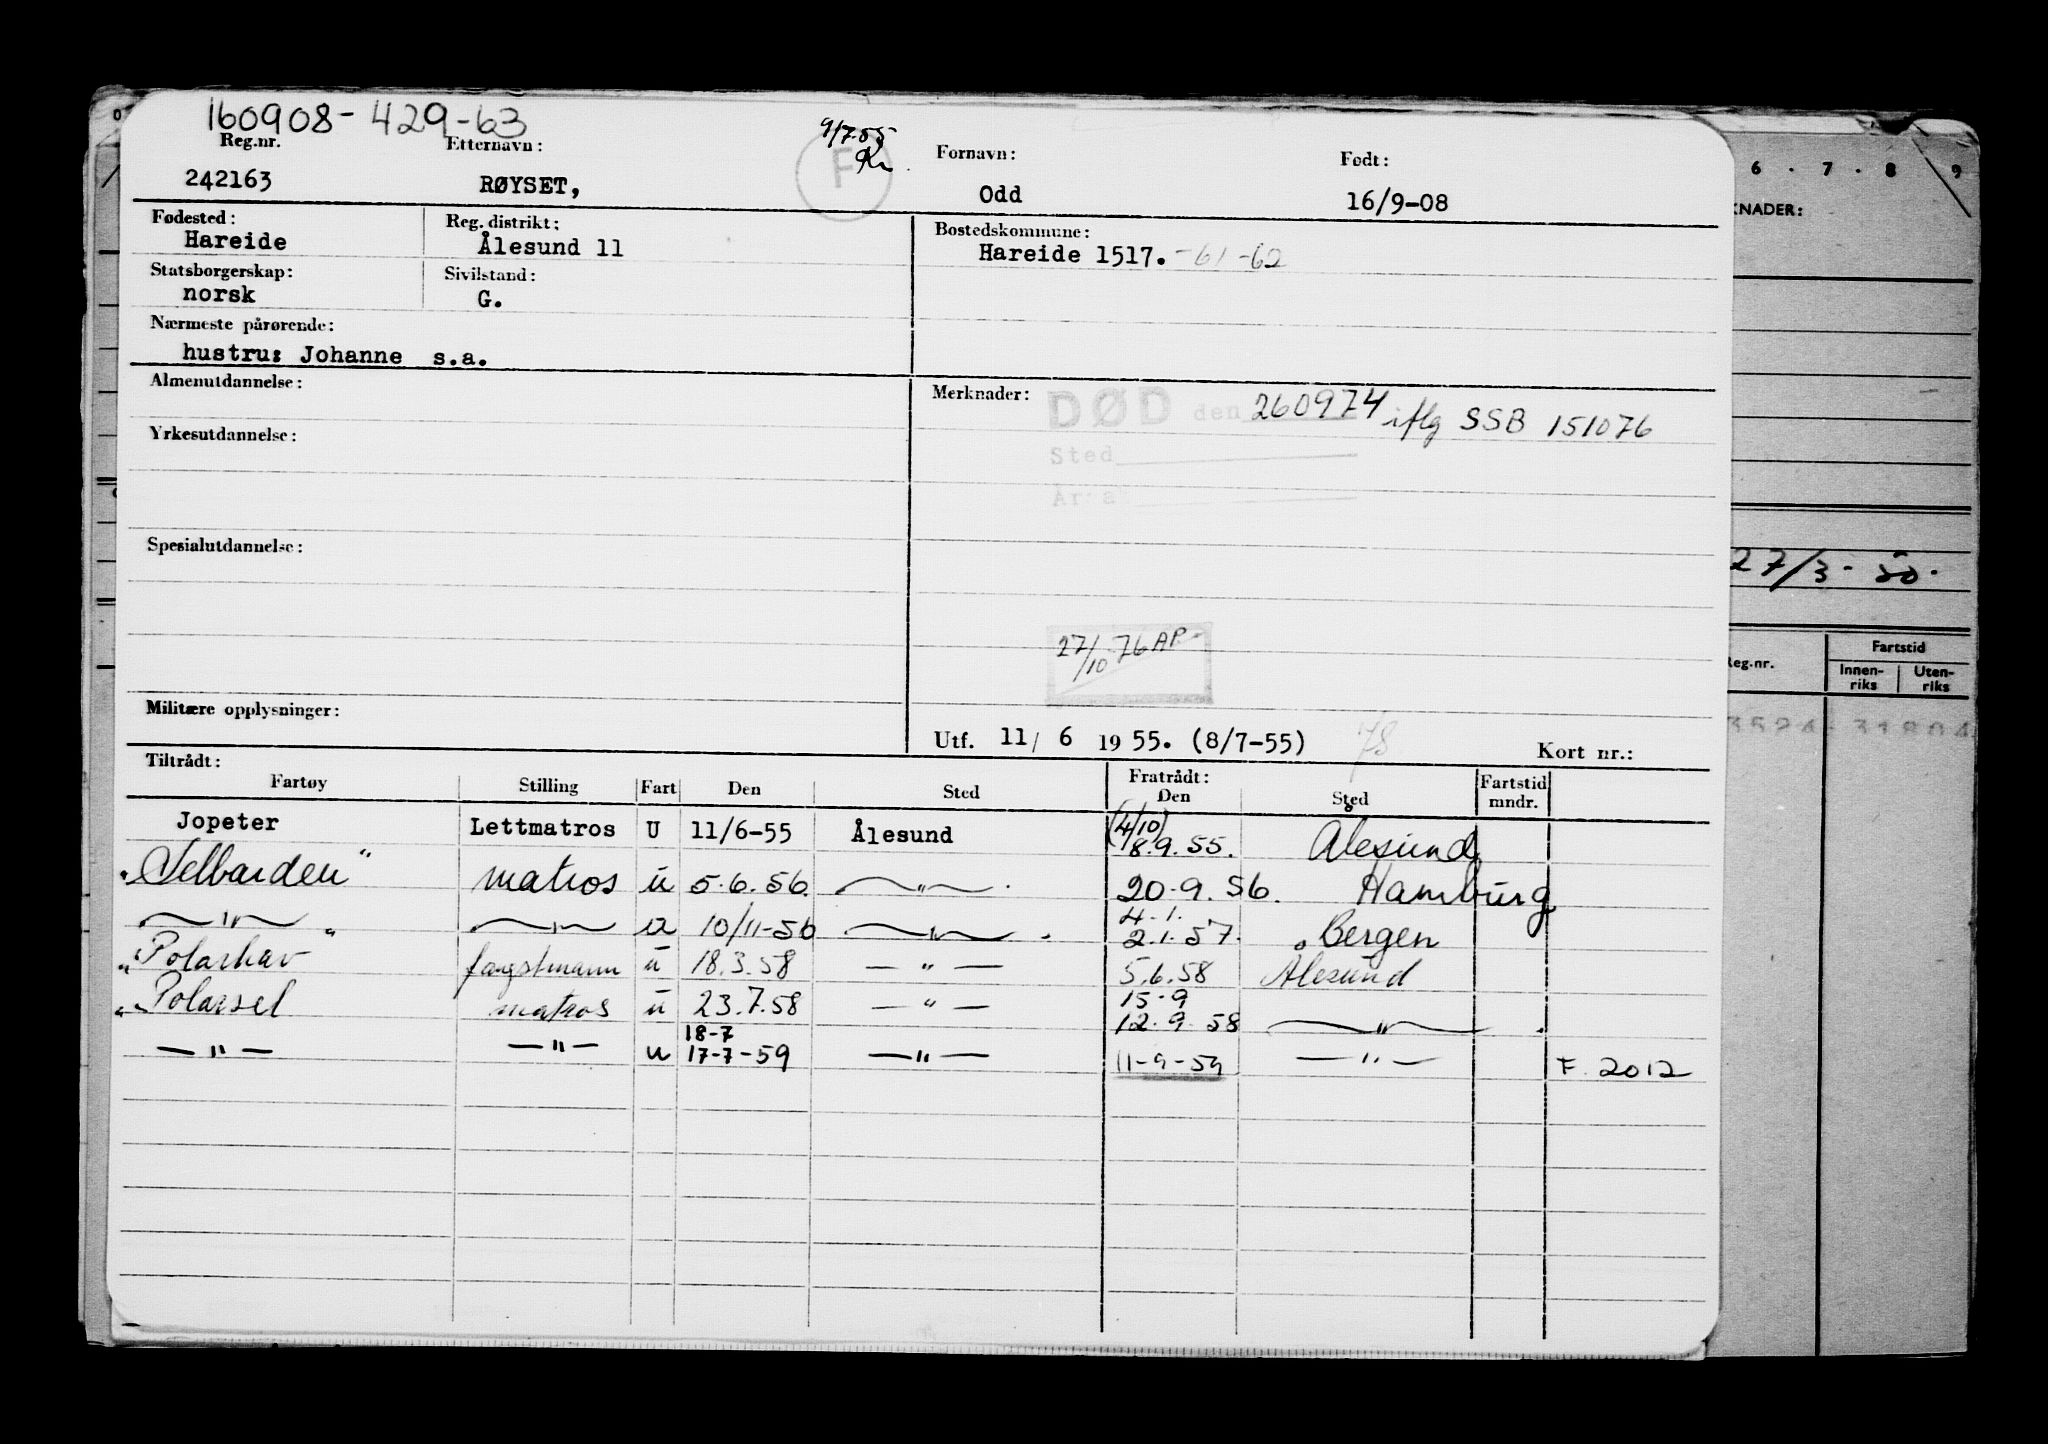 160908-429-63
Reg.nr. Etternavn: 9/7.55 Fornavn: Født:
F Kr.
242163 RØYSET, Odd 16/9-08
Fødested: Reg. distrikt: Bostedskommune:
Hareide Ålesund 11 Hareide 1517. -61-62
Statsborgerskap: Sivilstand:
norsk G.
Nærmeste pårørende:
hustru: Johanne s.a.
Almenutdannelse: Merknader: DØD den 260974 iflg SSB 151076
Yrkesutdannelse: Sted
Årsak
Spesialutdannelse:
27/10.76 AP.
Militære opplysninger:
Utf. 11/ 6 1955. (8/7-55) 78 Kort nr.:
Tiltrådt: Fratrådt:
Fartøy Stilling Fart Den Sted Den Sted Fartstid mndr.
Jopeter Lettmatros U 11/6-55 Ålesund (4/10) 8.9.55. Ålesund
"Selbarden" matros u 5.6.56. —"— . 20.9.56. Hamburg
—"— —"— u 10/11-56 —"— . 4.1. 2.1.57. Bergen
"Polarhav" fangstmann u 18.3.58 —"— 5.6.58 Ålesund
"Polarsel matros u 23.7.58 —"— 15.9 12.9.58 —"— .
—"— —"— u 18-7 17-7-59 —"— 11-9-59 —"— F. 2012
6 . 7 . 8 9
KNADER:
27/3-50.
Reg.nr. Fartstid
Innenriks Utenriks
3524 31804